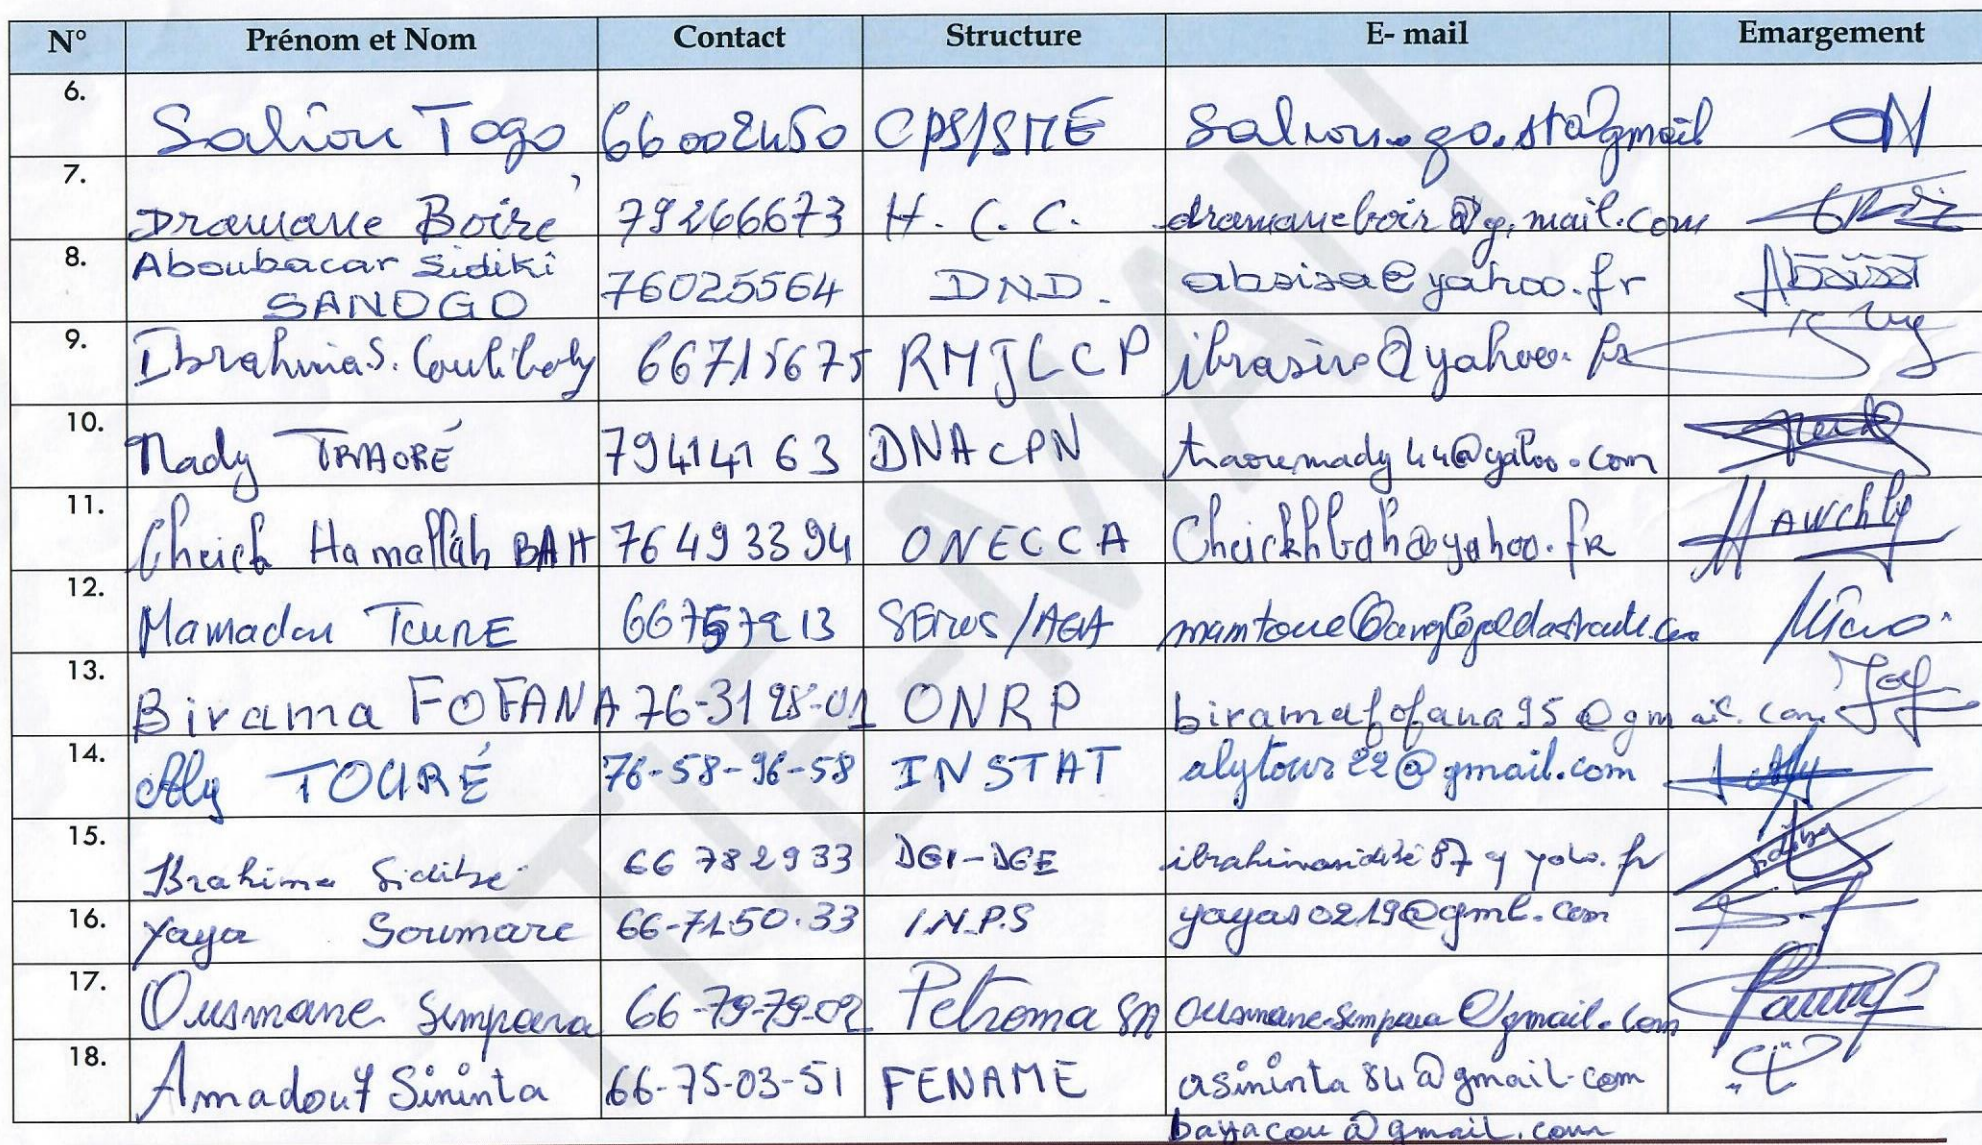 N° Prénom et Nom Contact Structure E- mail Emargement
6. Saliou Togo 66002450 CPS/SME
7. Dramane Boiré 79266673 H. C. C. dramaneboir@g.mail.com
8. Aboubacar Sidiki SANOGO 76025564 DND. absisa@yahoo.fr
9. Ibrahima S. Coulibaly 66715675 RMJLCP @yahoo.fr
10. Mady TRAORÉ 79414163 DNACPN traoremady44@yahoo.com
11. Cheick Hamallah BAH 76493394 ONECCA Cheickhbah@yahoo.fr
12. Mamadou TOURE 66757213
13. Birama FOFANA 76-31 28-01 ONRP biramafofana95@gmail.com
14. Aly TOURÉ 76-58-96-58 INSTAT alytour22@gmail.com Aly
15. Ibrahima Sidibé 66 782933 DGI-DGE
16. Yaya Soumare 66-71.50.33 I.N.P.S yayaso0219@gml.com
17. Ousmane Simpara 66-79-79-02 Petroma SA ousmane.simpara@gmail.com
18. Amadou Y Sininta 66-75-03-51 FENAME asininta84@gmail.com
bayacou@gmail.com
ITIE-MALI